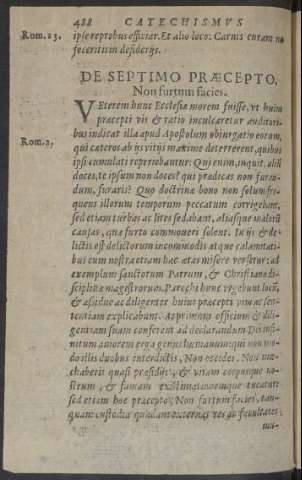 488 CATECHISMVS
Rom. 13. ipse reprobus efficiar. Et alio loco: Carnis curam ne
feceritis in desiderijs.
DE SEPTIMO PRÆCEPTO.
Non furtum facies.
VEterem hunc Ecclesiæ morem fuisse, vt huius
præcepti vis & ratio inculcaretur auditori-
bus indicat illa apud Apostolum obiurgatio eorum,
Rom. 2. qui cæteros ab ijs vitijs maxime deterrerent, quibus
ipsi cumulati reperiobantur: Qui enim, inquit, aliū
doces, te ipsum non doces? qui prædicas non furan-
dum, furaris? Quo doctrinæ bono non solum fre-
quens illorum temporum peccatum corrigebant,
sed etiam turbas ac lites sedabant, aliasque malorū
causas, quæ furto commoueri solent. In ijs & de-
lictis est delictorum incommodis atque calamitati-
bus cum nostra etiam hæc ætas misere versetur: ad
exemplum sanctorum Patrum, & Christianæ di-
sciplinæ magistrorum, Parochi hunc vrgebunt locū,
& assidue ac diligenter huius præcepti vim ac sen-
tentiam explicabunt. Ac primum officium & dili-
gentiam suam conferent ad declarandum Dei infi-
nitum amorem erga genus humanum: qui non mo-
do illis duobus interdictis, Non occides. Non mœ-
chaberis quasi præsidijs, & vitam corpusque no-
strum, & famam existimationemque tueatur:
sed etiam hoc præcepto, Non furtum facies, tan-
quam custodia quadam externas res ac facultates